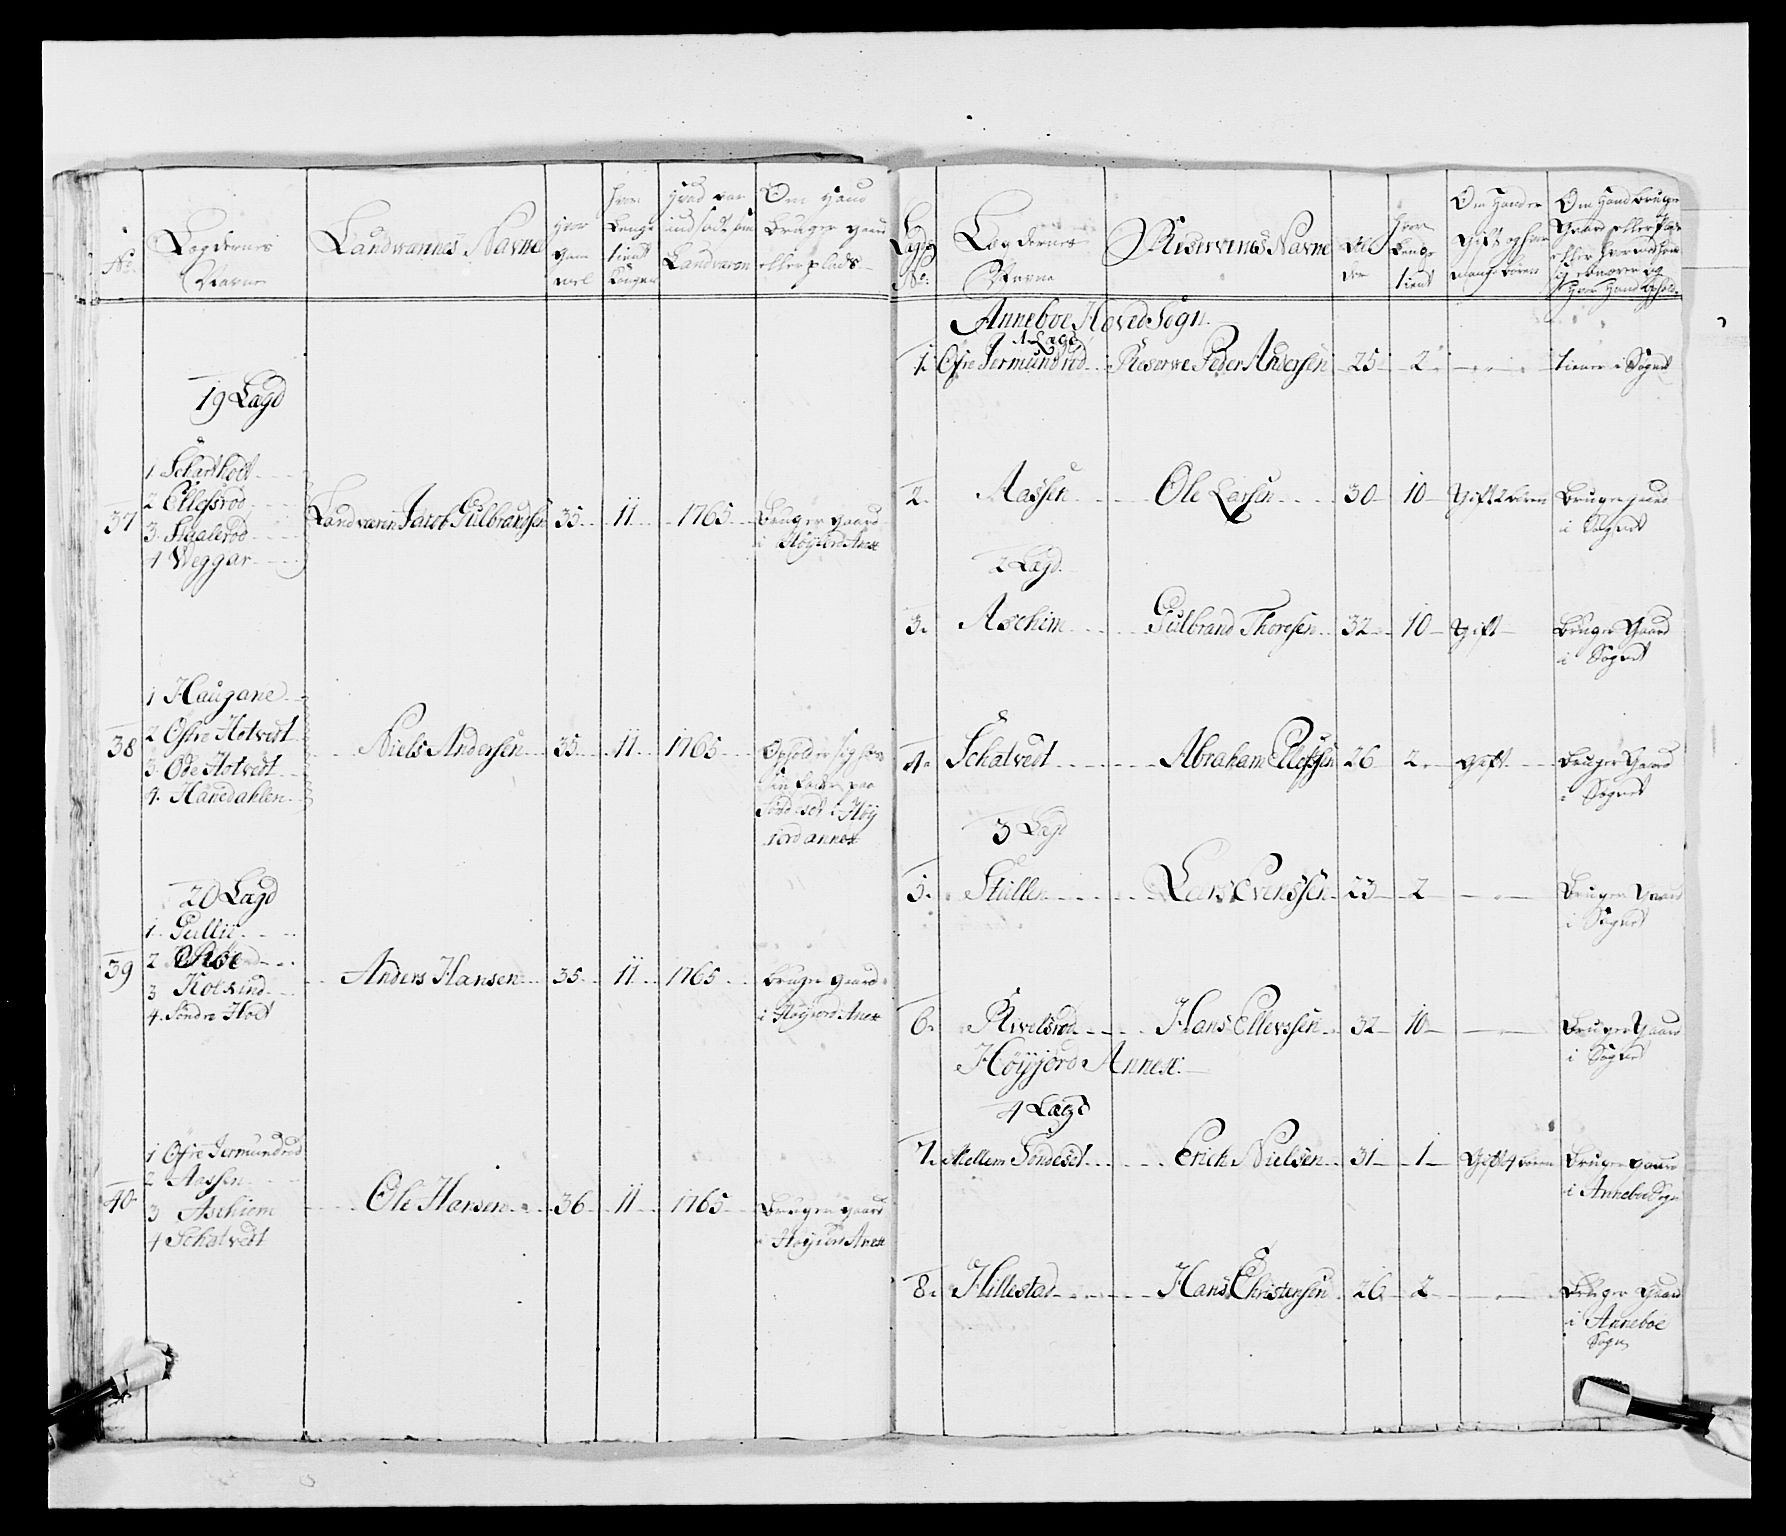 No.
Lægdernes
Navne
Landværnes Navne
Hvor
gam
mel
hvor
Lenge
tient
Kongen
Hvad aar
indsadt som
Landværn
Om Hand
bruger gaard
eller plads
19 Lægd
1 Schartholt
2 Ellefsrød
37
3. Skalerød
4 Weggar
Landværn Jacob Gulbrandsen 35 11 1765 Bruger gaard
i Høyjord Anex
1 Haugane
2 Øfre Hotvedt
38
3. Øde Hotvedt
4. Hanedahlen
Niels Andersen 35 11 1765 Opholder sig hos
Sin fader paa
Sondeset i Høy
iord annex
20 Lægd
1. Gullie
39
2 Røe
3 Kolkind
4. Søndre Holt
Anders Hansen 35 11 1765 bruger gaard
i Høyjord Anex
1 Øfre Jermundrød
2 Aassen
40
3 Aschiem
4 Schatvedt
Ole Hansen 36 11 1765 Bruger gaard
i Høyjord Anex
Lægds
No.
Lægdernes
Navne
Reservenes Navne
Al
der
Hvor
Lenge
tient
Om Hand er
Gift og hvor
mange børen
Om Hand bruger
Gaard eller Plads
eller hvormed Hand
sig ernærer og
Hvor Hand Opholder
Anneboe Hoved Sogn
1 Lægd
1. Øfre Jermundrød Reserve Peder Andersen 25 2 tiener i Sognet
2. Aassen Ole Larsen 30 10 Gift 2 børen Bruger gaard
i Sognet
2 Lægd
3. Aschim Gulbrand Thoresen 32 10 Gift Bruger Gaard
i Sognet
4. Schatvedt Abraham Ellefsen 26 2 gift Bruger Gaard
i Sognet
3 Lægd
5. Stullen Lars Evenssen 23 2 Bruger Gaard
i Sognet
6. Rivelsrød Hans Ellevssen 32 10 Bruger Gaard
i Sognet
Høyjord Annex
4 Lægd
7. Mellem Sondeset Erich Nielsen 31 1 Gift 4 børen Bruger gaard
i Anneboe Sogn
8. Hillestad Hans Christensen 26 2 Bruger Gaard
i Anneboe
Sogn